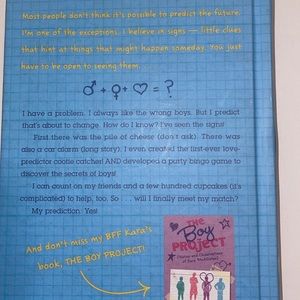 Most people don't think it's possible to predict the future.
I'm one of the exceptions. I believe in signs — little clues
that hint at things that might happen someday. You just
have to be open to seeing them.
♂ + ♀ + ♡ = ?
I have a problem. I always like the wrong boys. But I predict
that's about to change. How do I know? I've seen the signs!
First there was the pile of cheese (don't ask). There was
also a car alarm (long story). I even created the first-ever love-
predictor cootie catcher! AND developed a party bingo game to
discover the secrets of boys!
I can count on my friends and a few hundred cupcakes (it's
complicated) to help, too. So . . . will I finally meet my match?
My prediction: Yes!
And don't miss my BFF Kara's
book, THE BOY PROJECT!
THE
Boy
PROJECT